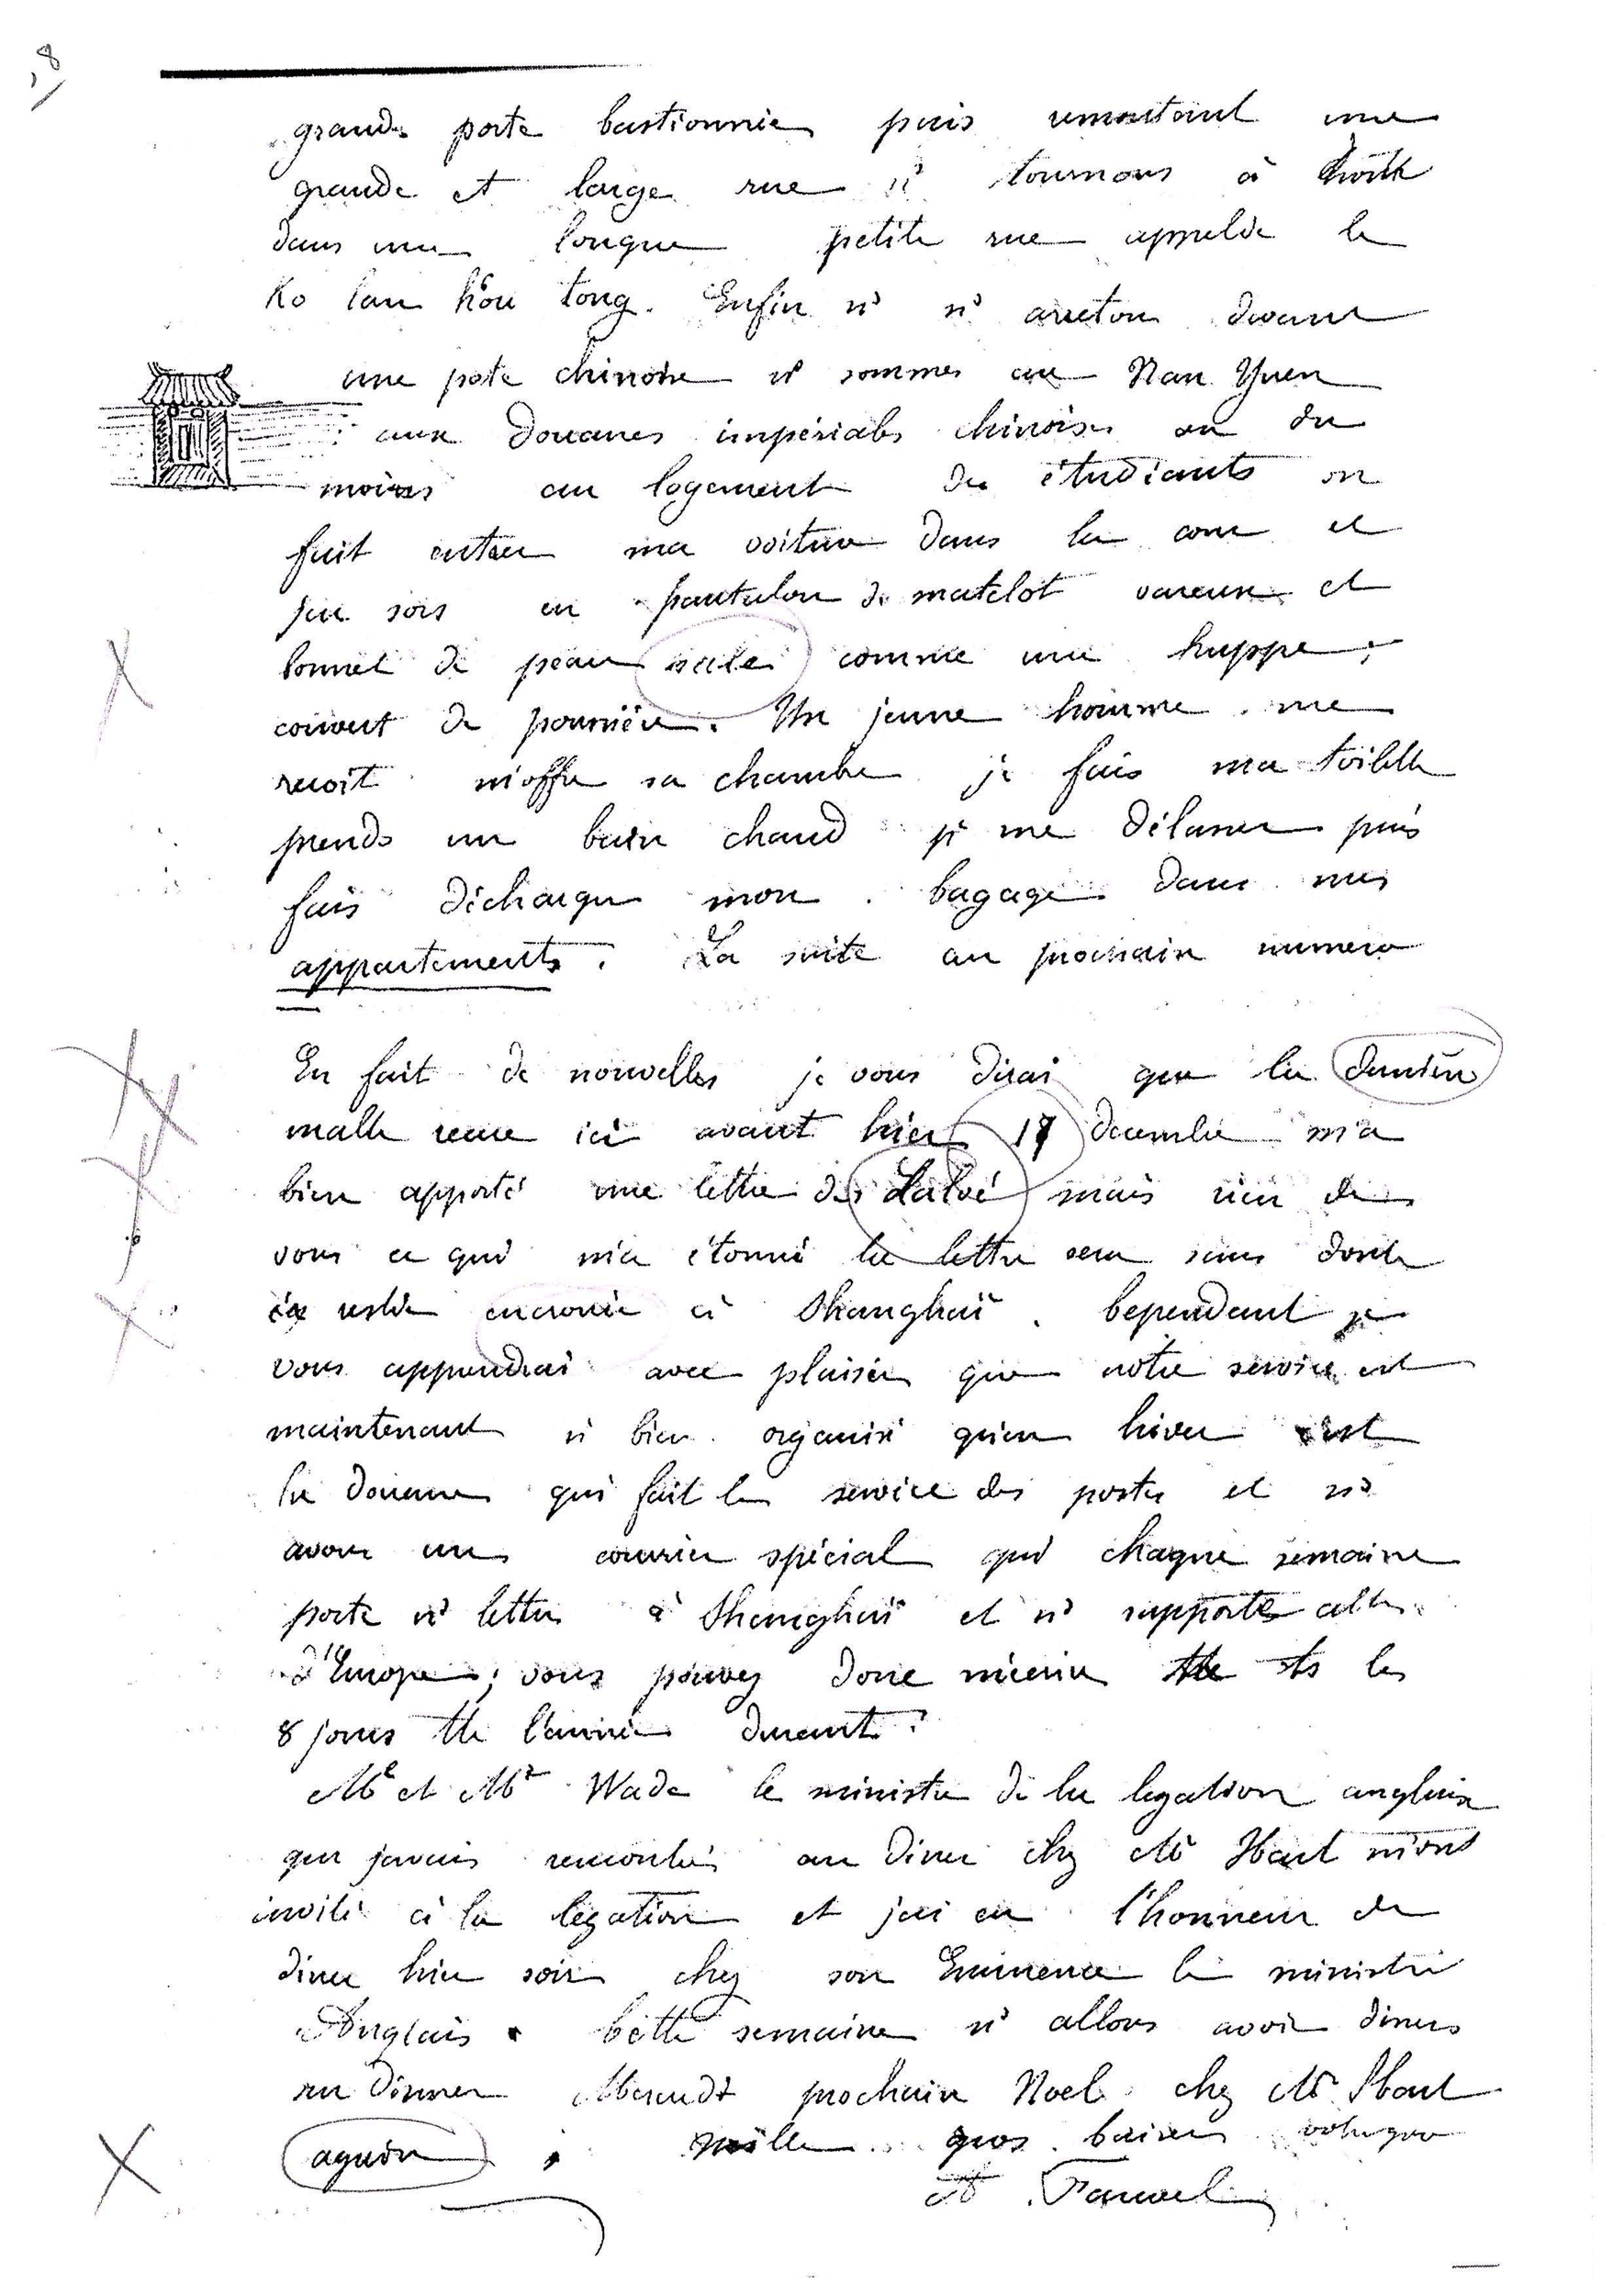 18
grande porte bastionnée puis remontant une
grande et large rue ns tournons à droite
dans une longue petite rue appelée le
Ko lan hou tong. Enfin ns ns arretons devant
une porte chinoise ns sommes au Nan Yuen
aux Douanes impériales chinoises ou du
moins au logement des étudiants on
fait entrer ma voiture dans la cour et
j'en sors en pantalon de matelot vareuse et
bonnet de peau sale comme une huppe;
couvert de poussière. Un jeune homme me
recoit m'offre sa chambre je fais ma toilette
prends un bain chaud pr me délasser puis
fais décharger mon bagage dans mes
appartements. La suite au prochain numero
En fait de nouvelles je vous dirai que la dernière
malle recue ici avant hier 17 decembre m'a
bien apporté une lettre de mais rien de
vous ce qui m'a étonné la lettre sera sans doute
restée à Shanghaï. Cependant je
vous apprendrai avec plaisir que notre service est
maintenant si bien organisé qu'en hiver c'est
la douane qui fait le service des postes et ns
avons un courrier spécial qui chaque semaine
porte ns lettres à Shanghaï et ns rapporte celles
d'Europe; vous pouvez donc m'ecrire ts les
8 jours tte l'année durant.
Me et Mr Wade le ministre de la legation anglaise
que j'avais rencontrés au diner chez Mr Hart m'ont
invité à la légation et j'ai eu l'honneur de
diner hier soir chez son Eminence le ministre
Anglais. Cette semaine ns allons avoir diners
sur diners Mercredi prochain Noel chez Mr Hart
mille gros baisers
A Fauvel